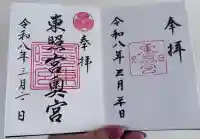 奉拝
東照宮奥宮
令和八年三月六日
奉拝
令和八年三月六日